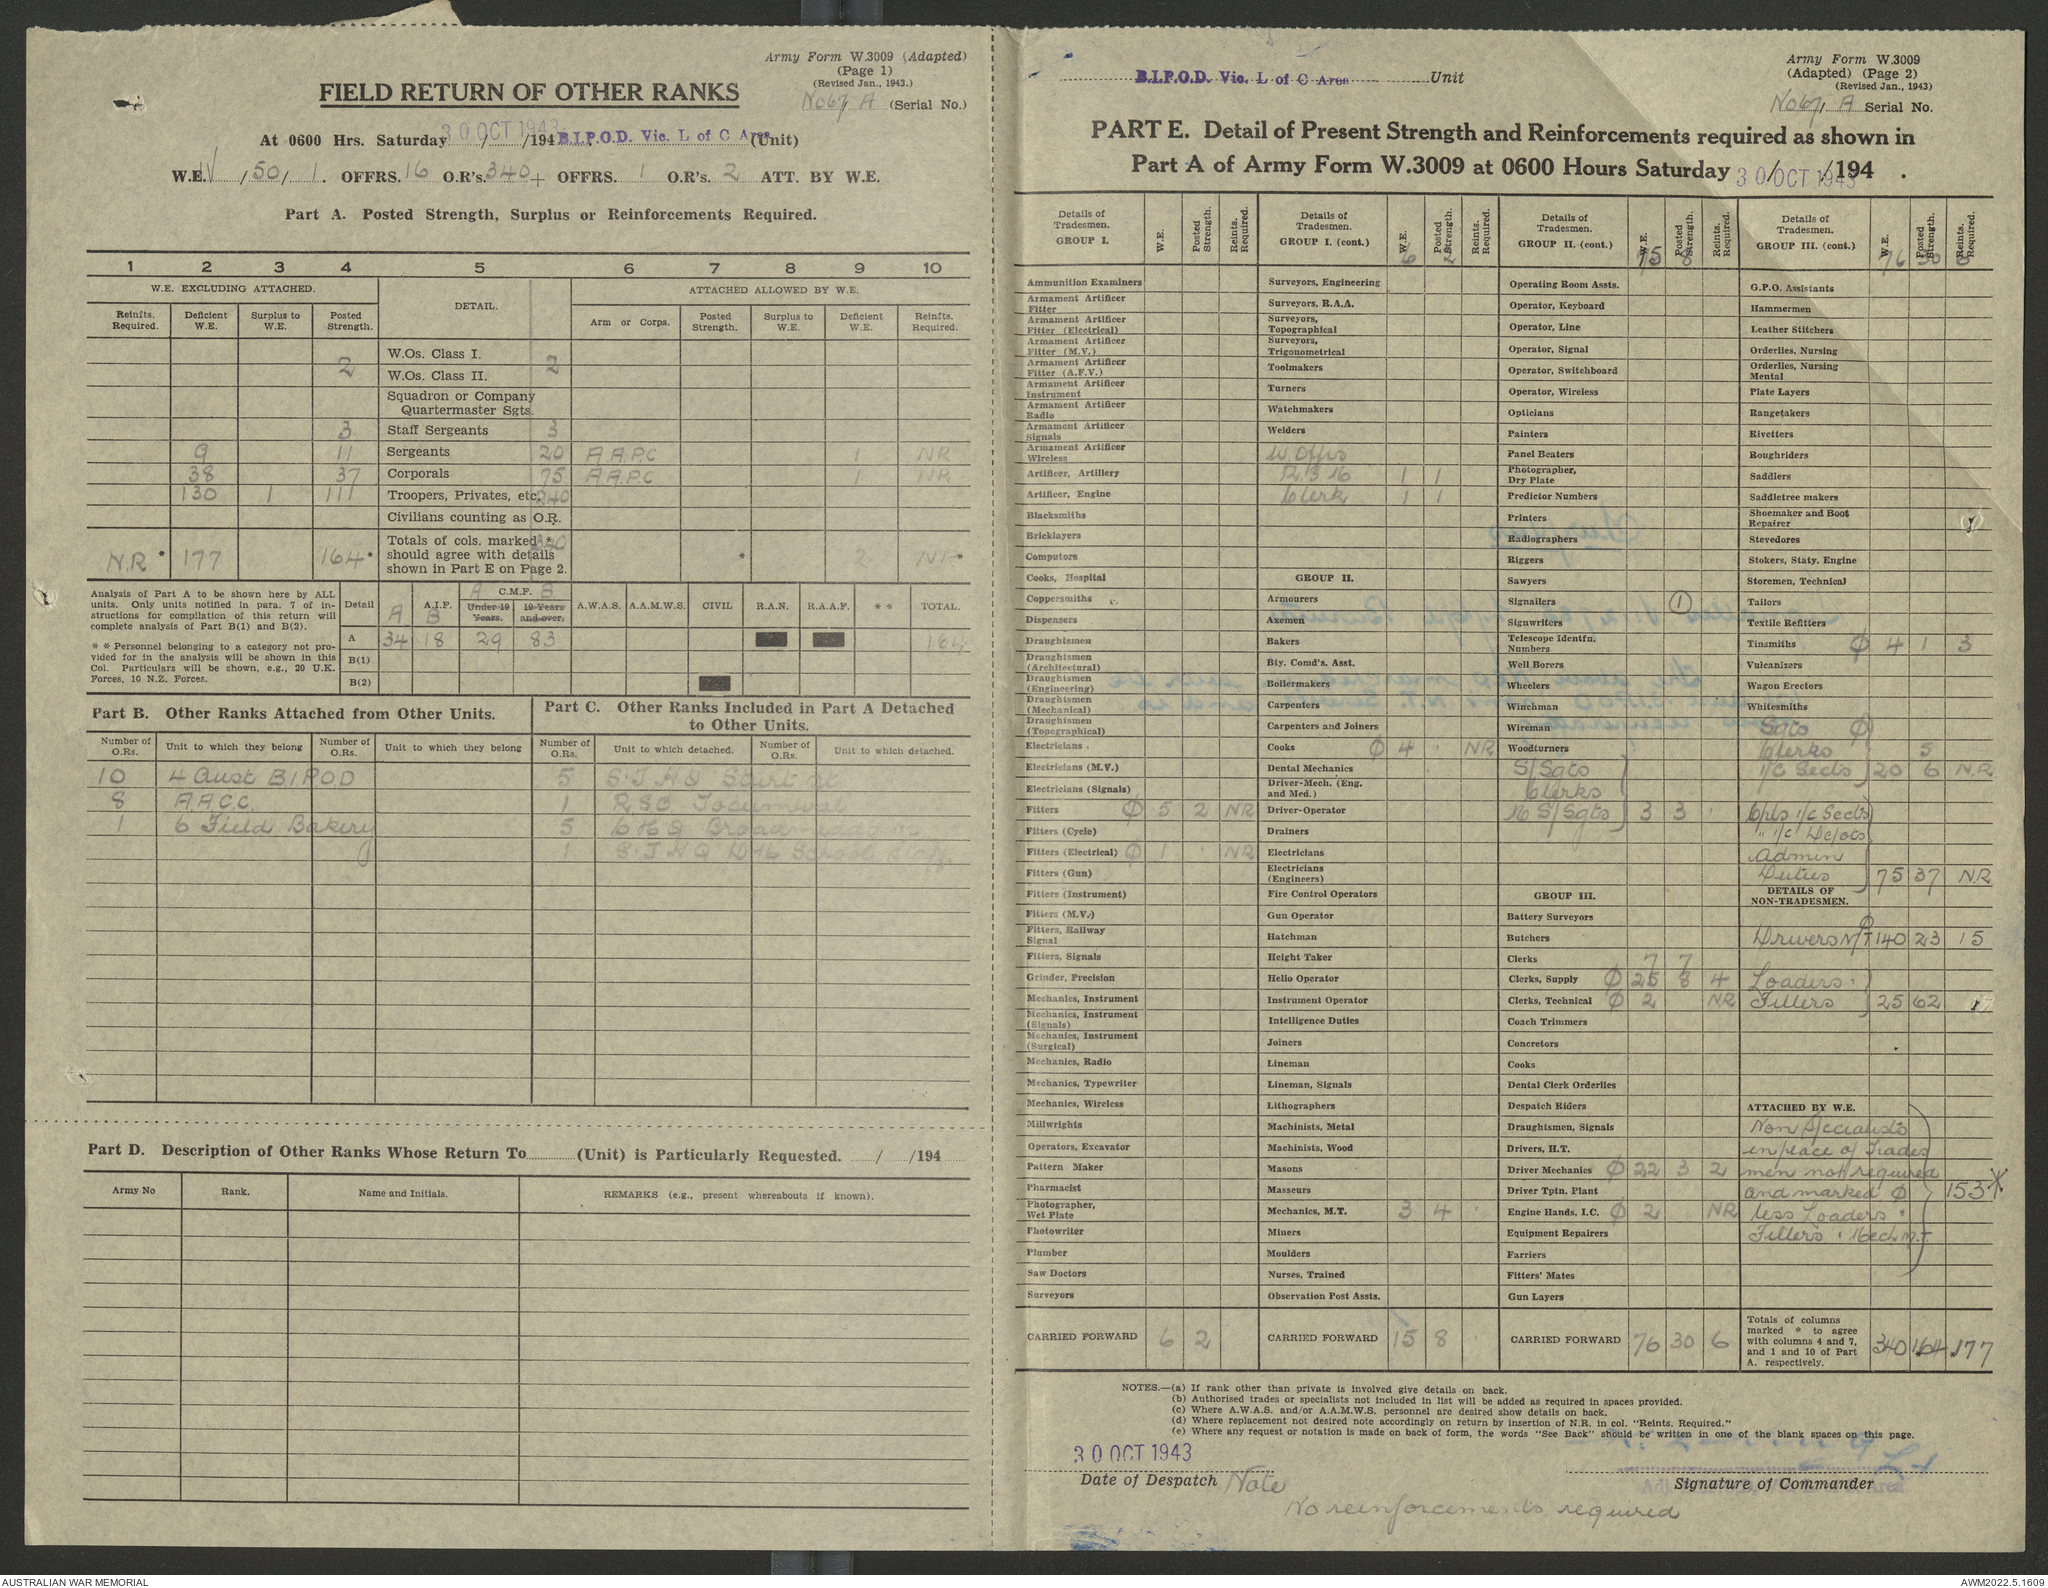 Army Form W.3009 (Adapted)
(Page 1)
(Revised Jan., 1943.)
FIELD RETURN OF OTHER RANKS
No 67/ A (Serial No.)
At 0600 Hrs. Saturday 30 OCT 1943 /194 B.I.P.O.D. Vic. L of C Area (Unit)
W.E. IV / 50 / 1. OFFRS. 16 O.R's. 340 + OFFRS. 1 O.R's. 2 ATT. BY W.E.
Part A. Posted Strength, Surplus or Reinforcements Required.
1 2 3 4 5 6 7 8 9 10
W.E. EXCLUDING ATTACHED. DETAIL. ATTACHED ALLOWED BY W.E.
Reinfts. Required. Deficient W.E. Surplus to W.E. Posted Strength. Arm or Corps. Posted Strength. Surplus to W.E. Deficient W.E. Reinfts. Required.
W.Os. Class I.
2 W.Os. Class II. 2
Squadron or Company
Quartermaster Sgts.
3 Staff Sergeants 3
9 11 Sergeants 20 A.A.P.C 1 NR
38 37 Corporals 75 A.A.P.C 1 NR
130 1 111 Troopers, Privates, etc. 240
Civilians counting as O.R.
N.R * 177 164 * Totals of cols. marked * 340 * 2 NR *
should agree with details
shown in Part E on Page 2.
Analysis of Part A to be shown here by ALL
units. Only units notified in para. 7 of in-
structions for compilation of this return will
complete analysis of Part B(1) and B(2).
* * Personnel belonging to a category not pro-
vided for in the analysis will be shown in this
Col. Particulars will be shown, e.g., 20 U.K.
Forces, 10 N.Z. Forces.
Detail A A.I.F. B A C.M.F. B A.W.A.S. A.A.M.W.S. CIVIL R.A.N. R.A.A.F. * * TOTAL.
Under 19 Years. 19 Years and over.
A 34 18 29 83 164
B(1)
B(2)
Part B. Other Ranks Attached from Other Units.
Number of O.Rs. Unit to which they belong Number of O.Rs. Unit to which they belong
10 4 Aust B.I.P.O.D
8 A.A.C.C.
1 6 Field Bakery
Part C. Other Ranks Included in Part A Detached
to Other Units.
Number of O.Rs. Unit to which detached. Number of O.Rs. Unit to which detached.
5 S.T.H.Q Sturt St
1 R.S.O Tocumwal
5 C H Q Broadmeadows
1 S.T.H.Q School Staff
Part D. Description of Other Ranks Whose Return To (Unit) is Particularly Requested. / /194
Army No Rank. Name and Initials. REMARKS (e.g., present whereabouts if known).
B.I.P.O.D. Vic. L of C Area Unit
Army Form W.3009
(Adapted) (Page 2)
(Revised Jan., 1943)
No 67/ A Serial No.
PART E. Detail of Present Strength and Reinforcements required as shown in
Part A of Army Form W.3009 at 0600 Hours Saturday 30 OCT 1943 /194 .
Details of Tradesmen. GROUP I. W.E. Posted Strength. Reints. Required.
Ammunition Examiners
Armament Artificer Fitter
Armament Artificer Fitter (Electrical)
Armament Artificer Fitter (M.V.)
Armament Artificer Fitter (A.F.V.)
Armament Artificer Instrument
Armament Artificer Radio
Armament Artificer Signals
Armament Artificer Wireless
Artificer, Artillery
Artificer, Engine
Blacksmiths
Bricklayers
Computors
Cooks, Hospital
Coppersmiths
Dispensers
Draughtsmen
Draughtsmen (Architectural)
Draughtsmen (Engineering)
Draughtsmen (Mechanical)
Draughtsmen (Topographical)
Electricians
Electricians (M.V.)
Electricians (Signals)
Fitters ϕ 5 2 NR
Fitters (Cycle)
Fitters (Electrical) ϕ 1 . NR
Fitters (Gun)
Fitters (Instrument)
Fitters (M.V.)
Fitters, Railway Signal
Fitters, Signals
Grinder, Precision
Mechanics, Instrument
Mechanics, Instrument (Signals)
Mechanics, Instrument (Surgical)
Mechanics, Radio
Mechanics, Typewriter
Mechanics, Wireless
Millwrights
Operators, Excavator
Pattern Maker
Pharmacist
Photographer, Wet Plate
Photowriter
Plumber
Saw Doctors
Surveyors
CARRIED FORWARD 6 2
Details of Tradesmen. GROUP I. (cont.) W.E. 6 Posted Strength. 2 Reints. Required.
Surveyors, Engineering
Surveyors, R.A.A.
Surveyors, Topographical
Surveyors, Trigonometrical
Toolmakers
Turners
Watchmakers
Welders
W. Offrs
1 1
Clerk 1 1
GROUP II.
Armourers
Axemen
Bakers
Bty. Comd's. Asst.
Boilermakers
Carpenters
Carpenters and Joiners
Cooks ϕ 4 . NR
Dental Mechanics
Driver-Mech. (Eng. and Med.)
Driver-Operator
Drainers
Electricians
Electricians (Engineers)
Fire Control Operators
Gun Operator
Hatchman
Height Taker
Helio Operator
Instrument Operator
Intelligence Duties
Joiners
Lineman
Lineman, Signals
Lithographers
Machinists, Metal
Machinists, Wood
Masons
Masseurs
Mechanics, M.T. 3 4 .
Miners
Moulders
Nurses, Trained
Observation Post Assts.
CARRIED FORWARD 15 8 .
Details of Tradesmen. GROUP II. (cont.) W.E. 15 Posted Strength. 8 Reints. Required.
Operating Room Assts.
Operator, Keyboard
Operator, Line
Operator, Signal
Operator, Switchboard
Operator, Wireless
Opticians
Painters
Panel Beaters
Photographer, Dry Plate
Predictor Numbers
Printers
Radiographers
Riggers
Sawyers
Signallers 1
Signwriters
Telescope Identfn. Numbers
Well Borers
Wheelers
Winchman
Wireman
Woodturners
S/Sgts
Clerks
S/Sgts 3 3 .
GROUP III.
Battery Surveyors
Butchers
Clerks 7 7
Clerks, Supply ϕ 25 8 4
Clerks, Technical ϕ 2 NR
Coach Trimmers
Concretors
Cooks
Dental Clerk Orderlies
Despatch Riders
Draughtsmen, Signals
Drivers, H.T.
Driver Mechanics ϕ 22 3 2
Driver Tptn. Plant
Engine Hands, I.C. ϕ 2 NR
Equipment Repairers
Farriers
Fitters' Mates
Gun Layers
CARRIED FORWARD 76 30 6
Details of Tradesmen. GROUP III. (cont.) W.E. 76 Posted Strength. 30 Reints. Required. 6
G.P.O. Assistants
Hammermen
Leather Stitchers
Orderlies, Nursing
Orderlies, Nursing Mental
Plate Layers
Rangetakers
Rivetters
Roughriders
Saddlers
Saddletree makers
Shoemaker and Boot Repairer
Stevedores
Stokers, Staty. Engine
Storemen, Technical
Tailors
Textile Refitters
Tinsmiths ϕ 4 1 3
Vulcanizers
Wagon Erectors
Whitesmiths
Sgts ϕ
Clerks 5
i/c Sects 20 6 N.R
Cpls i/c Sects
" i/c Depots
Admin
Duties 75 37 NR
DETAILS OF
NON-TRADESMEN.
Drivers M/T ϕ 140 23 15
Loaders
Fillers 25 62
ATTACHED BY W.E.
Non Specialists
in place of Trades
men not required
and marked ϕ 153 *
less Loaders
Fillers Mech M.T.
Totals of columns
marked * to agree
with columns 4 and 7,
and 1 and 10 of Part
A. respectively. 340 *164 *177
NOTES.—(a) If rank other than private is involved give details on back.
(b) Authorised trades or specialists not included in list will be added as required in spaces provided.
(c) Where A.W.A.S. and/or A.A.M.W.S. personnel are desired show details on back.
(d) Where replacement not desired note accordingly on return by insertion of N.R. in col. "Reints. Required."
(e) Where any request or notation is made on back of form, the words "See Back" should be written in one of the blank spaces on this page.
30 OCT 1943
Date of Despatch Signature of Commander
Note
No reinforcements required
AUSTRALIAN WAR MEMORIAL AWM2022.5.1609